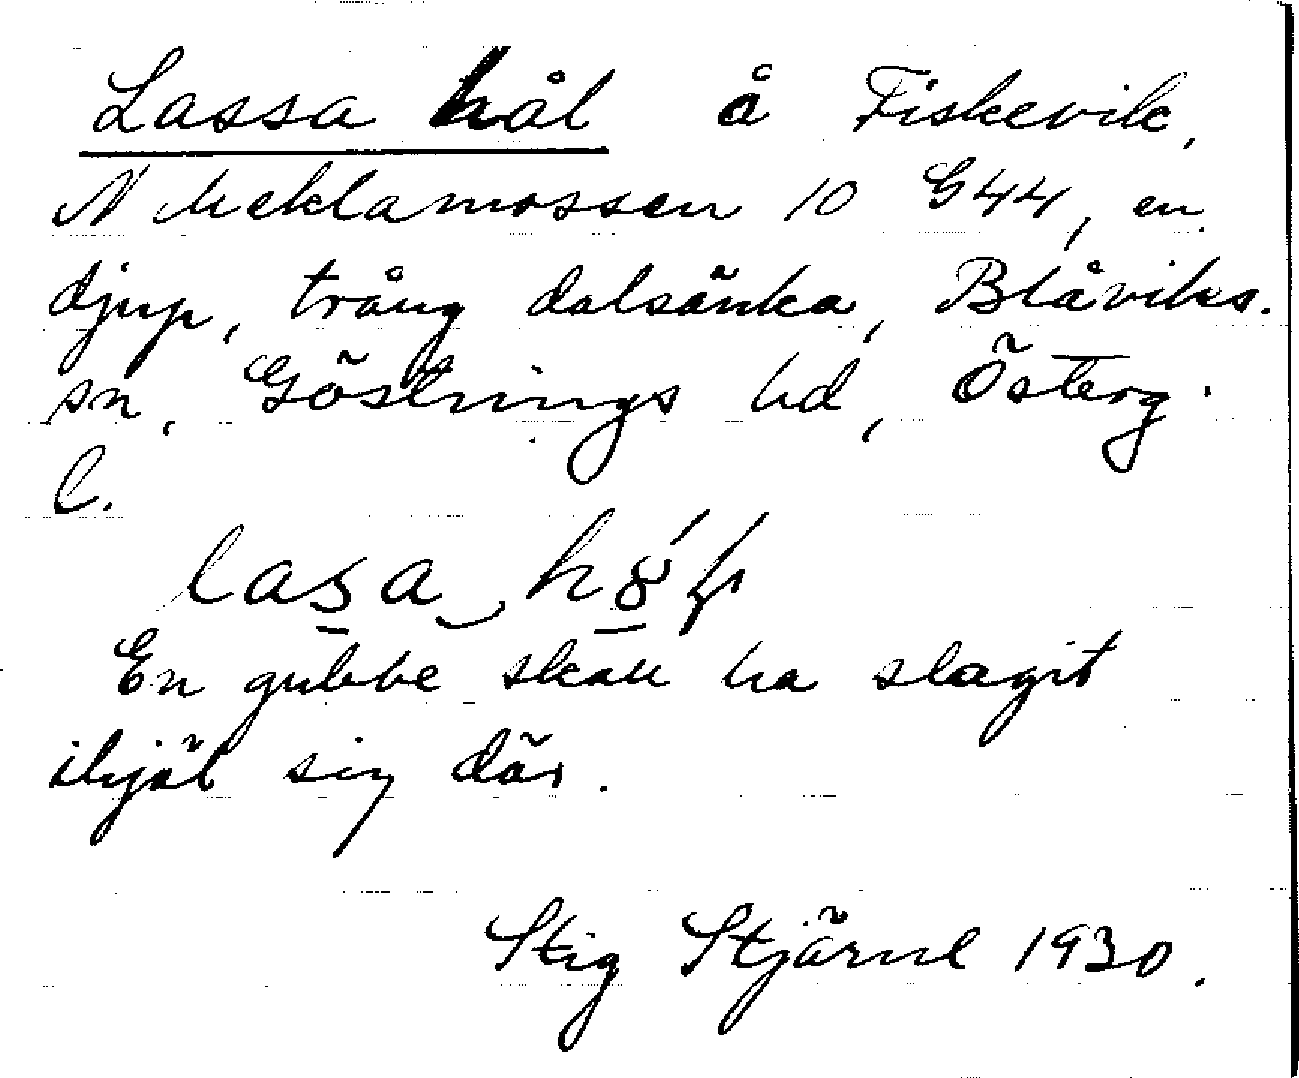 Lassa hål å Fiskevik,
N Meklamossen 10 G44, en
djup, trång dalsänka, Blåviks.
sn, Göstrings hd, Österg.
l.
lasa h
En gubbe skall ha slagit
ihjäl sig där.
Stig Stjärne 1930.